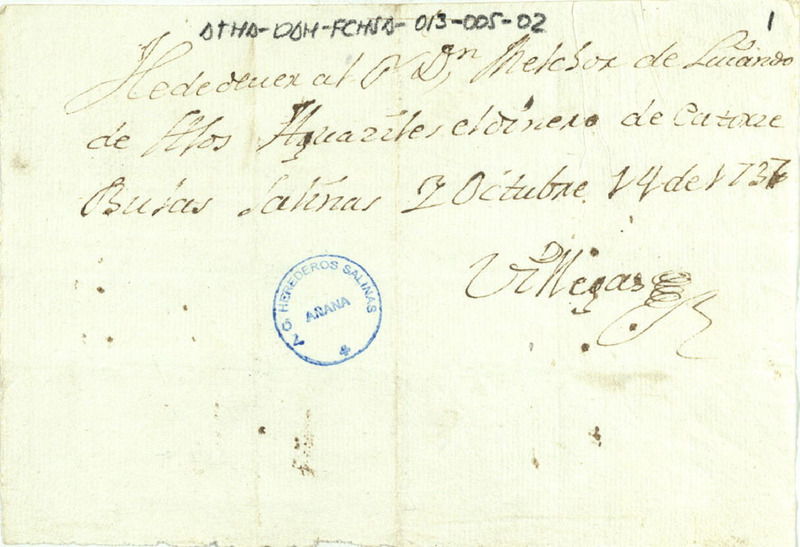 ATHA-DAH-FCHSA-013-005-02
1
Hede dever al Sr Dn Melchor de
de Alos Aguariles el dinero de Catorze
Bulas Salinas y Octubre 14 de 1737
Villegas
A.C. HEREDEROS SALINAS
AÑANA